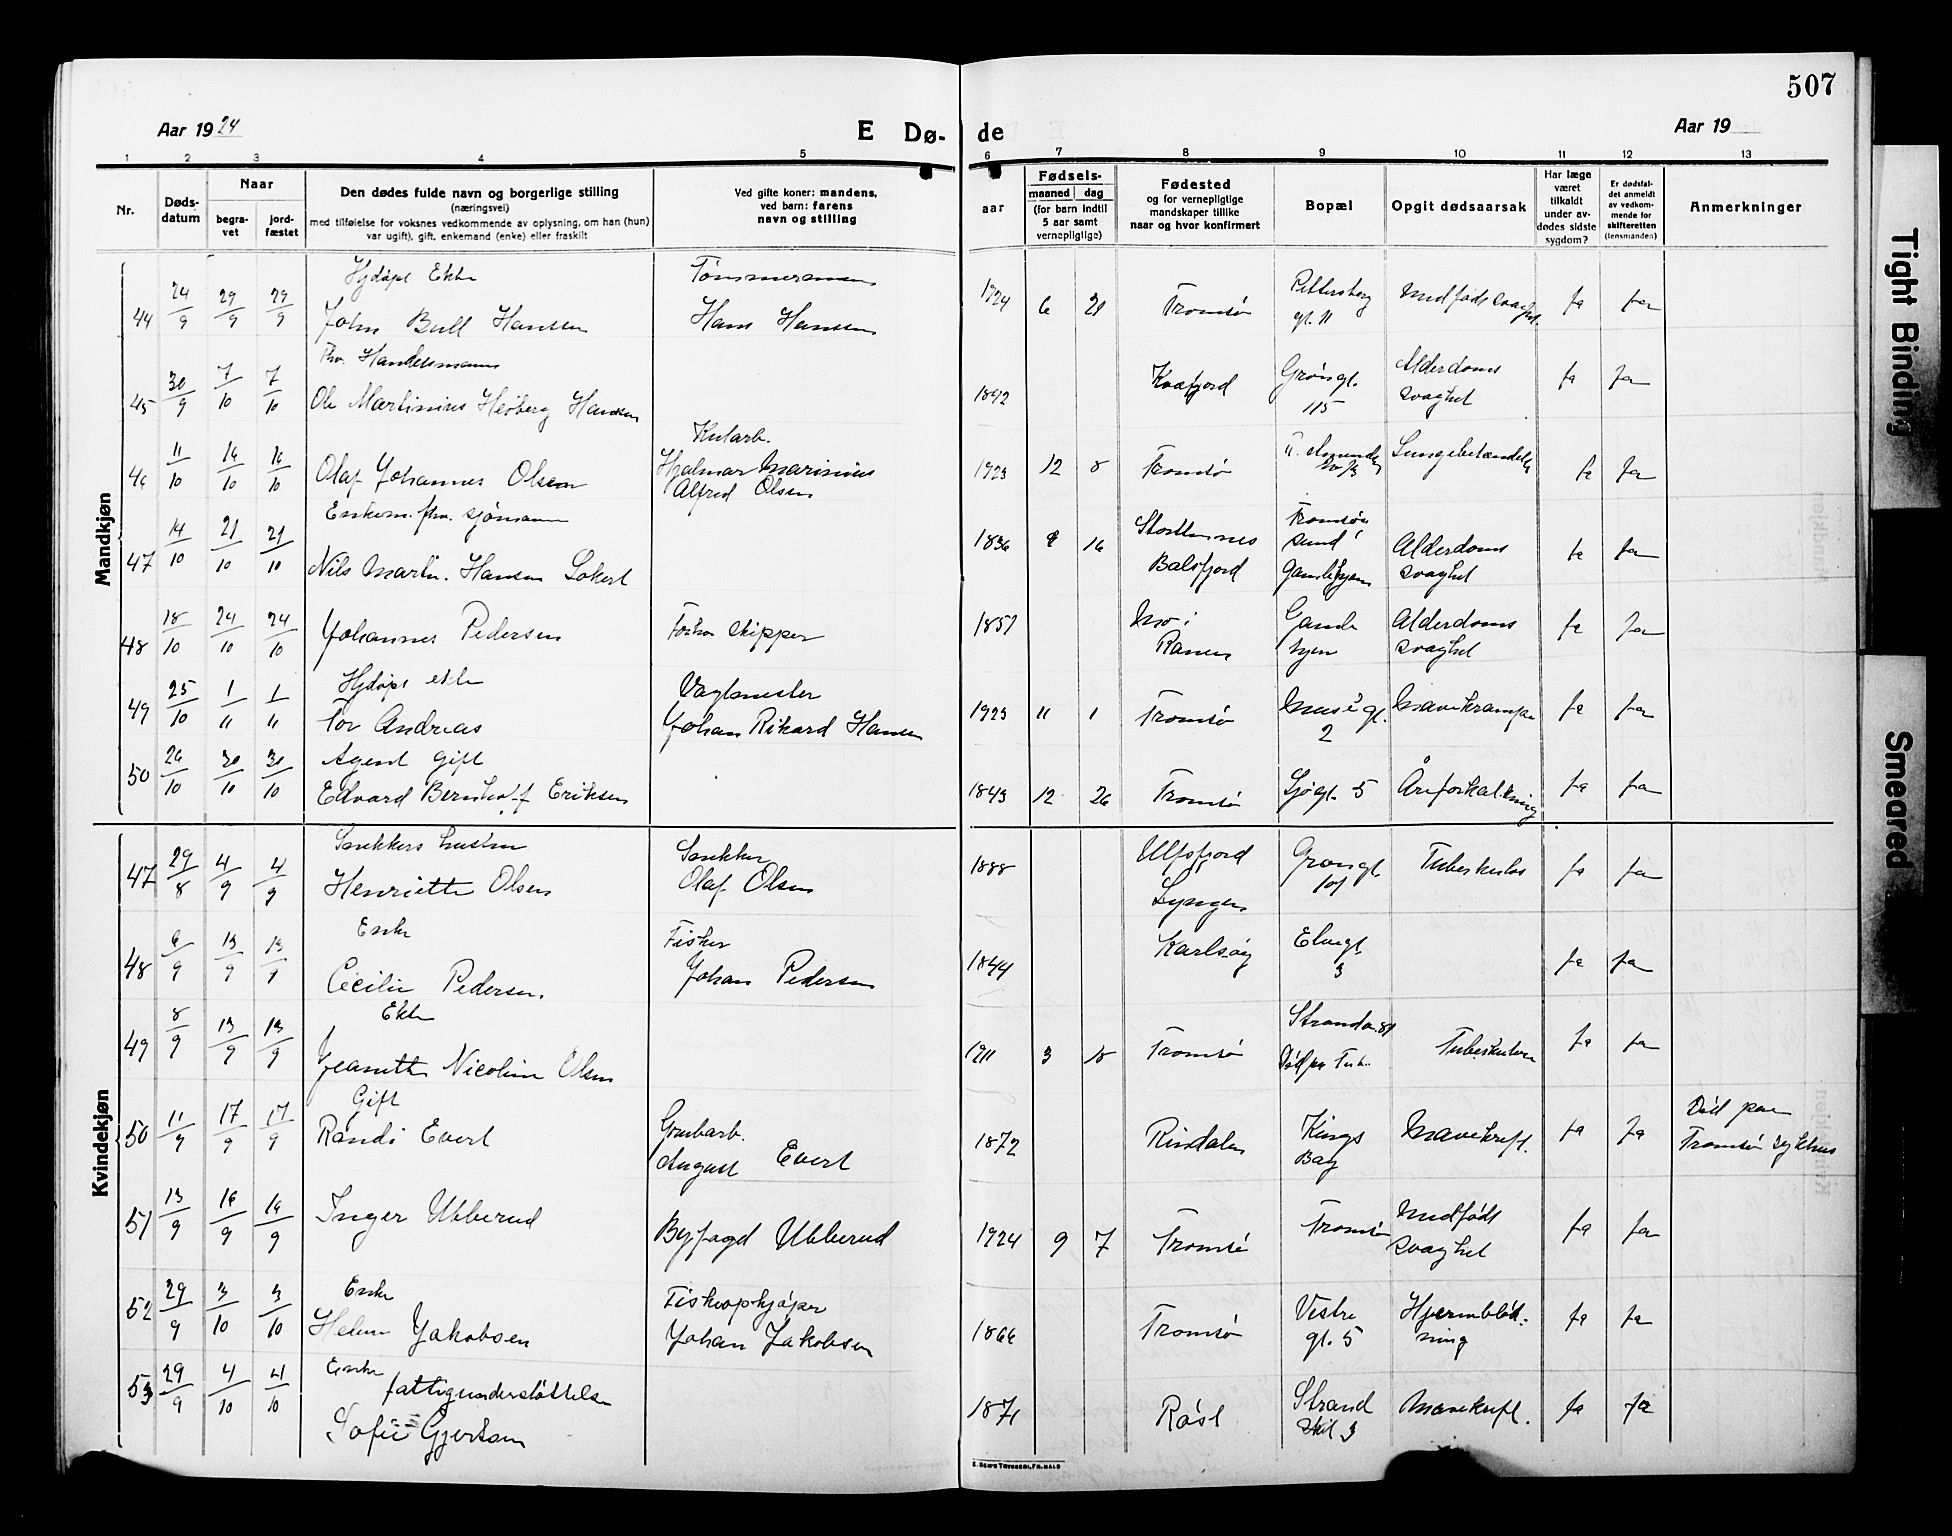 507
Aar 1924
E Dø-
de
Aar 19
1 2 3 4 5 6 7 8 9 10 11 12 13
Nr.
Døds-
datum
Naar
begra-
vet
jord-
fæstet
Den dødes fulde navn og borgerlige stilling
(næringsvei)
med tilføielse for voksnes vedkommende av oplysning, om han (hun)
var ugift), gift, enkemand (enke) eller fraskilt
Ved gifte koner: mandens,
ved barn: farens
navn og stilling
aar
Fødsels-
maaned dag
(for barn indtil
5 aar samt
vernepligtige)
Fødested
og for vernepligtige
mandskaper tillike
naar og hvor konfirmert
Bopæl
Opgit dødsaarsak
Har læge
været
tilkaldt
under av-
dødes sidste
sygdom?
Er dødsfal-
det anmeldt
av vedkom-
mende for
skifteretten
(lensmanden)
Anmerkninger
Mandkjøn
44 24/9 29/9 29/9 Hjdøpt Ekte
John Bull Hansen
Tømmermann
Hans Hansen
1924 6 21 Tromsø Pettersborg
gt. 11
Medfødt svaghet. ja ja
45 30/9 7/10 7/10 Fhv. Handelsmann
Ole Martinius Heiberg Hansen
1842 Kvæfjord Grønngt.
115
Alderdoms
svaghet ja ja
46 11/10 16/10 16/10 Olaf Johannes Olsen
Kularb.
Hjalmar Marinius
Alfred Olsen
1923 12 8 Tromsø Lungebetændelse ja ja
47 14/10 21/10 21/10 Enkem. fhv. sjømann
Nils Martin Hansen Lokert
1836 9 16 Storstennes
Balsfjord
Tromsøa
sund
Gamlehjem
Alderdoms
svaghet ja ja
48 18/10 24/10 24/10 Johannes Pedersen
Forhv skipper
1851 Mo i
Ranen
Gamle
hjem
Alderdoms
svaghet ja ja
49 25/10 1/11 1/11 Hjdøpt ekte
Tor Andreas
Vagtmester
Johan Rikard Hansen
1923 11 1 Tromsø Musegt.
2
Mavekrampe ja ja
50 26/10 30/10 30/10 Agent gift
Edvard Bernhof Eriksen
1843 12 26 Tromsø Sjøgt. 5 Åreforkalkning ja ja
Kvindekjøn
47 29/8 4/9 4/9 Snekkers hustru
Henriette Olsen
Snekker
Olaf Olsen
1888 Ulfsfjord
Lyngen
Grønngt.
101
Tuberkulos ja ja
48 6/9 13/9 13/9 Enke
Cecilie Pedersen.
Fisker
Johan Pedersen
1844 Karlsøy Elvegt.
3
ja ja
49 8/9 13/9 13/9 Ekte
Jeanette Nicoline Olsen
1911 3 18 Tromsø Strandv. 81
Død paa Tub.
Tuberkulose ja ja
50 11/9 17/9 17/9 Gift
Randi Evert
Grubarb.
August Evert
1872 Rindalen Kings
Bay
Mavekreft. ja ja Død paa
Tromsø sykehus
51 13/9 16/9 16/9 Inger Ubberud
Byfogd Ubberud
1924 9 7 Tromsø Tromsø Medfødt
svaghet ja ja
52 29/9 3/10 3/10 Enke
Helene Jakobsen
Fiskeopkjøper
Johan Jakobsen
1866 Tromsø Vestre
gt. 5
Hjerneblød-
ning ja ja
53 29/9 4/10 4/10 Enke
fattigunderstøttelse
Sofie Gjertsen
1871 Røst Strand
skil 3
Mavekreft. ja ja
E. SEM'S TRYKKERI, FR.HALD
Tight Binding
Smeared